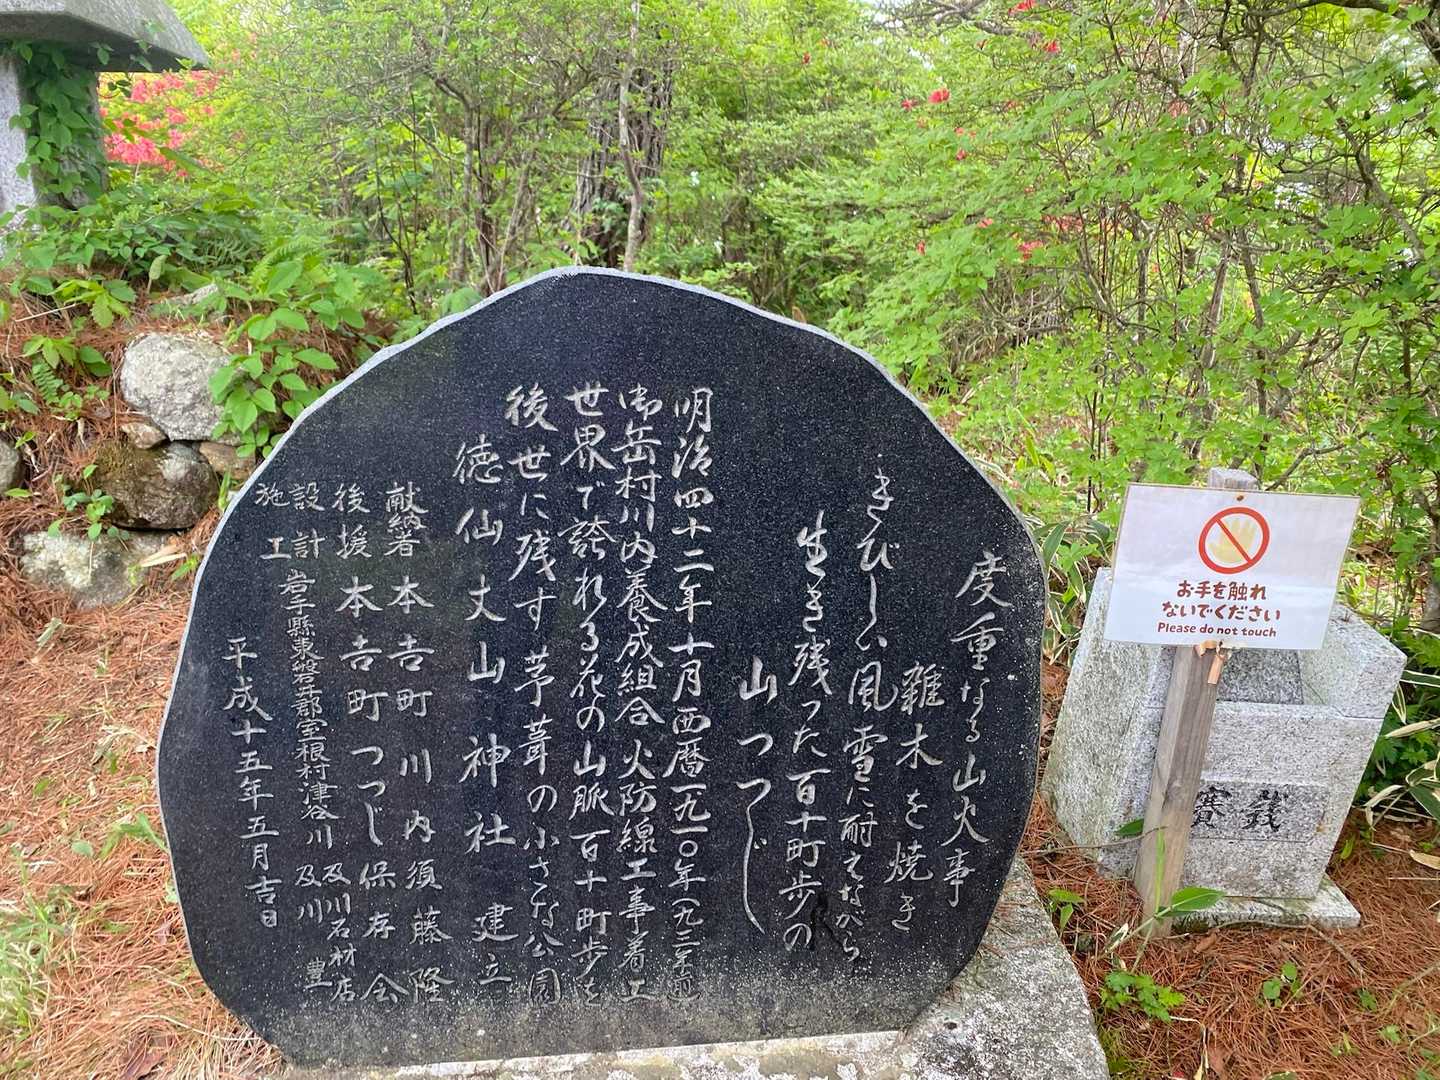 度重なる山火事
雑木を焼き
きびしい風雪に耐えながら
生き残った百十町歩の
山つつじ
明治四十二年十月西暦一九一〇年(九三年前)
御岳村川内養成組合火防線工事着工
世界で誇れる花の山脈百十町歩を
後世に残す茅葺の小さな公園
徳仙丈山神社建立
献納者 本吉町川内 須藤 隆
後援 本吉町つつじ保存会
設計 岩手縣東磐井郡室根村津谷川 及川石材店
施工 及川 豊
平成十五年五月吉日
お手を触れ
ないでください
Please do not touch
賽銭